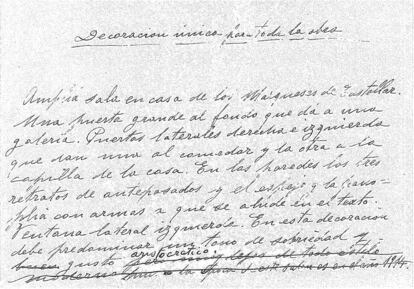 Decoracion única para toda la obra
Amplia sala en casa de los Marqueses de
Una puerta grande al fondo que da a una
galería. Puertas laterales derecha e izquierda
que dan una al comedor y la otra a la
capilla de la casa. En las paredes los tres
retratos de antepasados y el espejo y la pano-
plia con armas a que se alude en el texto.
Ventana lateral izquierda. En esta decoracion
debe predominar un tono de seriedad y
buen gusto aristocrático. de todo estilo
moderno 1914.